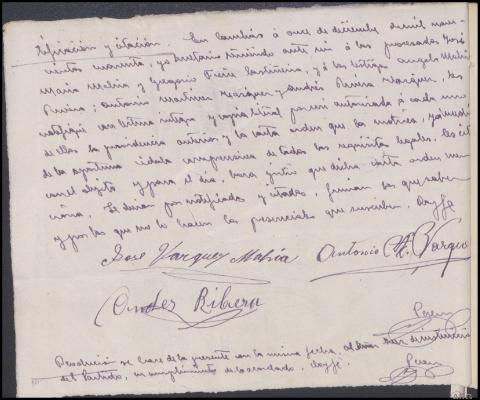 tificación y citación. En Cambás á once de diciembre de mil nove-
cientos cuarenta, yo Secretario teniendo ante mi á los procesados José
Maria y Gregorio y á los testigos Angel
Antonio Martinez Vazquez y Andrés Rivera Vazquez, les
notifiqué con lectura integra y copia literal por mi autorizada á cada uno
de ellos la providencia anterior y la carta orden que la motiva, y
de la oportuna cédula comprensiva de todos los requisitos legales, les cité
con el objeto y para el dia, hora y sitio que dicha carta orden men-
ciona. Se dieron por notificados y citados, firman los que saben
y por los que no lo hacen los presenciales que suscriben, doy fe
Jose Vazquez Antonio M. Vazquez
Andres Ribera
se hace de la presente con la misma fecha, al Señor Juez de instrucción
del Partido, en cumplimiento de lo acordado. Doy fe.